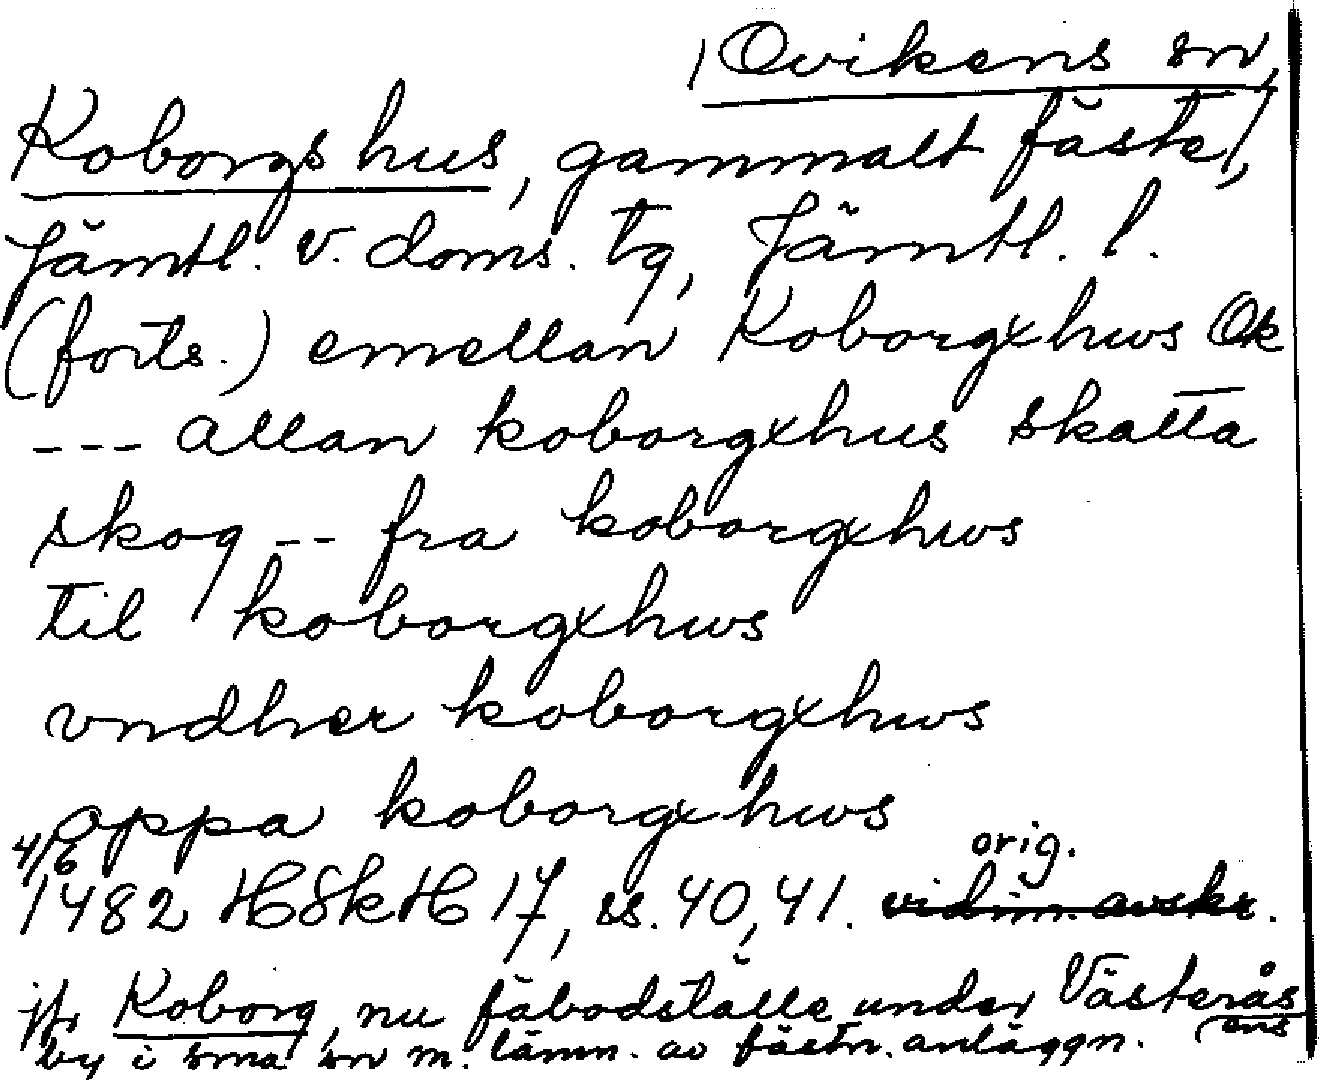 / Ovikens sn,
Koborgshus, gammalt fäste/,
Jämtl. v. doms. tg, Jämtl. l.
(forts.) emellan Koborgxhws Ok
--- allan koborgxhus skatta
skog -- fra koborgxhws
til koborgxhws
vndher koborgxhws
oppa koborgxhws
4/6 orig.
1482 HSkH 17, ss. 40, 41. vidim. avskr.
jfr Koborg, nu fäbodställe under Västerås
by i sma sn m. lämn. av fästn. anläggn. (ens